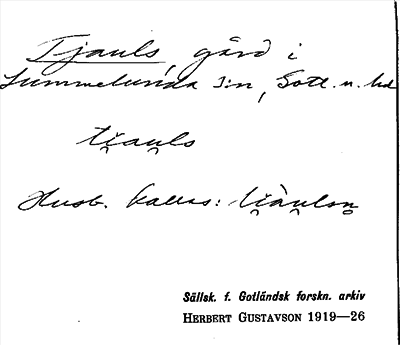 Tjauls, gård i
Lummelunda S:n, Gotl. n. hd
ti̯au̯ls
Husb. kallas: ti̯àu̯lsn̥
Sällsk. f. Gotländsk forskn. arkiv
HERBERT GUSTAVSON 1919—26